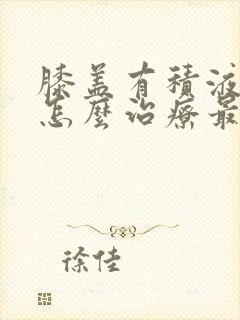 膝盖有積液
怎麼治療最
徐佳